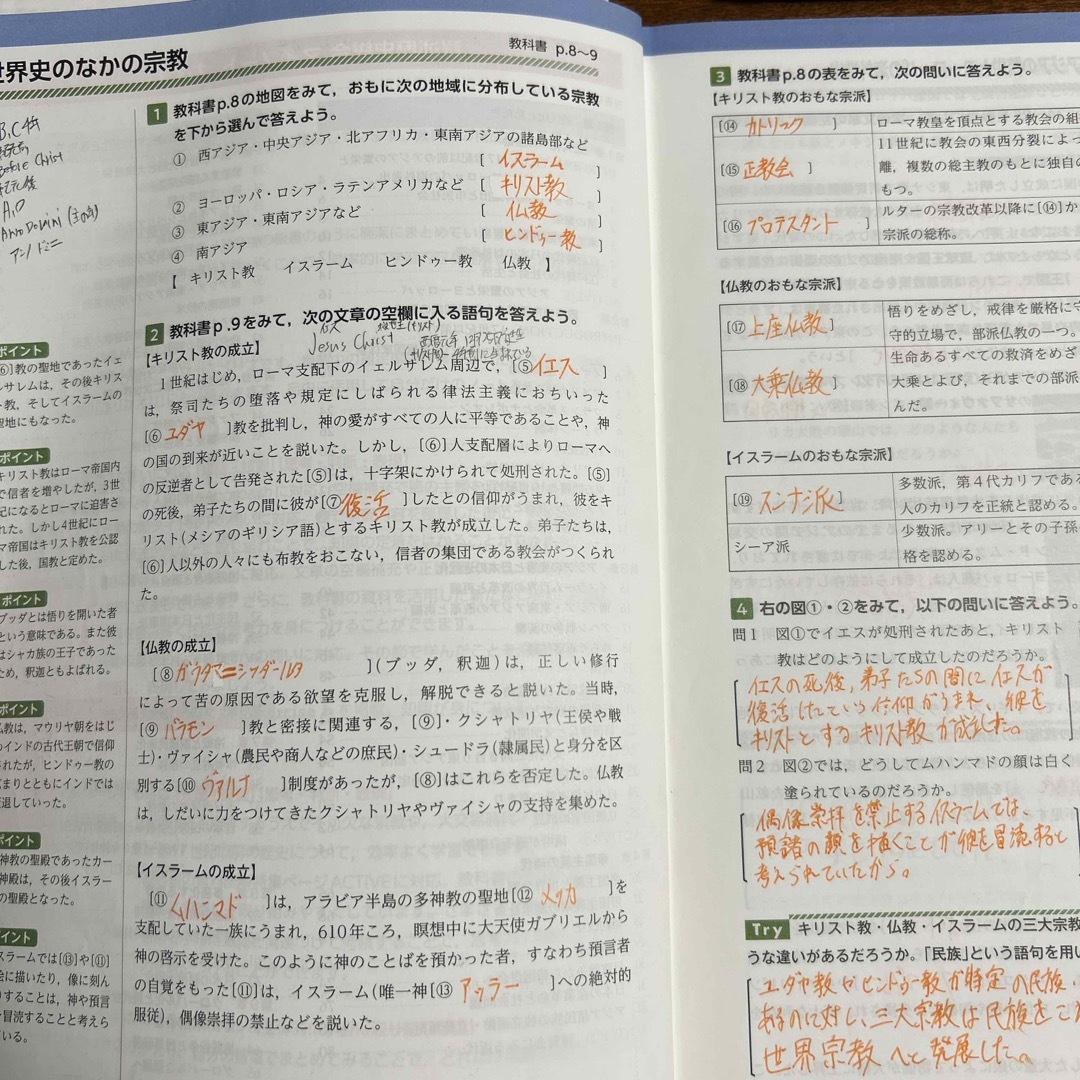 世界史のなかの宗教
教科書 p.8~9
B.C 紀元前
Before Christ
紀元後
A.D
Anno Domini (主の年)
アンノ ドミニ
1 教科書p.8の地図をみて，おもに次の地域に分布している宗教
を下から選んで答えよう。
① 西アジア・中央アジア・北アフリカ・東南アジアの諸島部など
[イスラーム]
② ヨーロッパ・ロシア・ラテンアメリカなど [キリスト教]
③ 東アジア・東南アジアなど [仏教]
④ 南アジア [ヒンドゥー教]
【 キリスト教 イスラーム ヒンドゥー教 仏教 】
2 教科書p.9をみて，次の文章の空欄に入る語句を答えよう。
イエス 救世主(キリスト)
Jesus Christ
【キリスト教の成立】
1世紀はじめ，ローマ支配下のイェルサレム周辺で，[⑤イエス]
は，祭司たちの堕落や規定にしばられる律法主義におちいった
[⑥ユダヤ]教を批判し，神の愛がすべての人に平等であることや，神
の国の到来が近いことを説いた。しかし，[⑥]人支配層によりローマへ
の反逆者として告発された[⑤]は，十字架にかけられて処刑された。[⑤]
の死後，弟子たちの間に彼が[⑦復活]したとの信仰がうまれ，彼をキ
リスト(メシアのギリシア語)とするキリスト教が成立した。弟子たちは，
[⑥]人以外の人々にも布教をおこない，信者の集団である教会がつくられ
た。
【仏教の成立】
[⑧ガウタマ=シッダールタ](ブッダ，釈迦)は，正しい修行
によって苦の原因である欲望を克服し，解脱できると説いた。当時，
[⑨バラモン]教と密接に関連する，[⑨]・クシャトリヤ(王侯や戦
士)・ヴァイシャ(農民や商人などの庶民)・シュードラ(隷属民)と身分を区
別する[⑩ヴァルナ]制度があったが，[⑧]はこれらを否定した。仏教
は，しだいに力をつけてきたクシャトリヤやヴァイシャの支持を集めた。
【イスラームの成立】
[⑪ムハンマド]は，アラビア半島の多神教の聖地[⑫メッカ]を
支配していた一族にうまれ，610年ころ，瞑想中に大天使ガブリエルから
神の啓示を受けた。このように神のことばを預かった者，すなわち預言者
の自覚をもった[⑪]は，イスラーム(唯一神[⑬アッラー]への絶対的
服従)，偶像崇拝の禁止などを説いた。
ポイント
⑥]教の聖地であったイェ
ルサレムは，その後キリス
ト教，そしてイスラームの
聖地にもなった。
ポイント
キリスト教はローマ帝国内
で信者を増やしたが，3世
紀になるとローマに迫害さ
れた。しかし4世紀にロー
マ帝国はキリスト教を公認
した後，国教と定めた。
ポイント
ブッダとは悟りを開いた者
という意味である。また彼
はシャカ族の王子であった
ため，釈迦ともよばれる。
ポイント
仏教は，マウリヤ朝をはじ
めインドの古代王朝で信仰
されたが，ヒンドゥー教の
広まりとともにインドでは
衰退していった。
ポイント
神教の聖殿であったカー
神殿は，その後イスラー
の聖殿となった。
ポイント
スラームでは[⑬]や[⑪]
絵に描いたり，像に刻ん
りすることは，神や預言
を冒涜することと考えら
ている。
3 教科書p.8の表をみて，次の問いに答えよう。
【キリスト教のおもな宗派】
[⑭ カトリック] ローマ教皇を頂点とする教会の組
[⑮ 正教会] 11世紀に教会の東西分裂によっ
離，複数の総主教のもとに独自の
もつ。
[⑯ プロテスタント] ルターの宗教改革以降に[⑭]か
宗派の総称。
【仏教のおもな宗派】
[⑰ 上座仏教] 悟りをめざし，戒律を厳格に守
守的立場で，部派仏教の一つ。
[⑱ 大乗仏教] 生命あるすべての救済をめざ
大乗とよび，それまでの部派
んだ。
【イスラームのおもな宗派】
[⑲ スンナ派] 多数派，第4代カリフである
人のカリフを正統と認める。
シーア派 少数派。アリーとその子孫
格を認める。
4 右の図①・②をみて，以下の問いに答えよう。
問1 図①でイエスが処刑されたあと，キリスト
教はどのようにして成立したのだろうか。
イエスの死後，弟子たちの間にイエスが
復活したという信仰がうまれ，彼を
キリストとするキリスト教が成立した。
問2 図②では，どうしてムハンマドの顔は白く
塗られているのだろうか。
偶像崇拝を禁止するイスラームでは，
預言者の顔を描くことが彼を冒涜すると
考えられていたから。
Try キリスト教・仏教・イスラームの三大宗教
うな違いがあるだろうか。「民族」という語句を用い
ユダヤ教やヒンドゥー教が特定の民族
あるのに対し、三大宗教は民族をこ
世界宗教へと発展した。